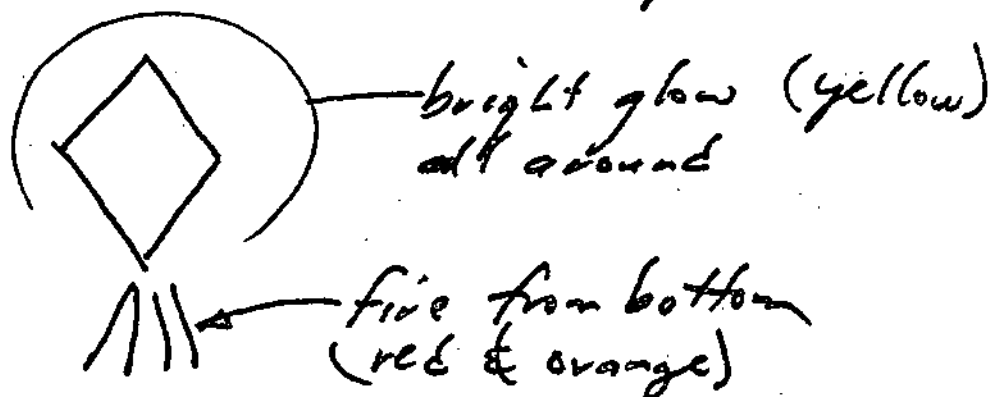 bright glow (yellow)
all around
fire from bottom
(red & orange)